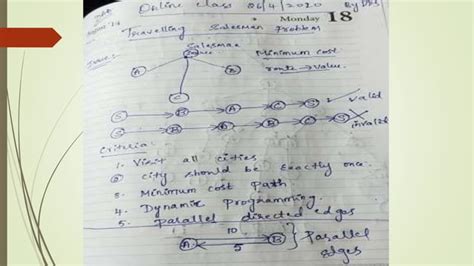 Online class 06/4/2020 By DRS
Monday 18
Travelling Salesman Problem
Salesman Minimum cost
Source
route → value.
A B
C
S → B → A → C → S valid
S → B → B → C → S invalid
Criteria:
1. Visit all cities
② city should be exactly once.
3. Minimum cost Path
4. Dynamic Programming.
5. Parallel directed edges
10
A B } Parallel
5 edges